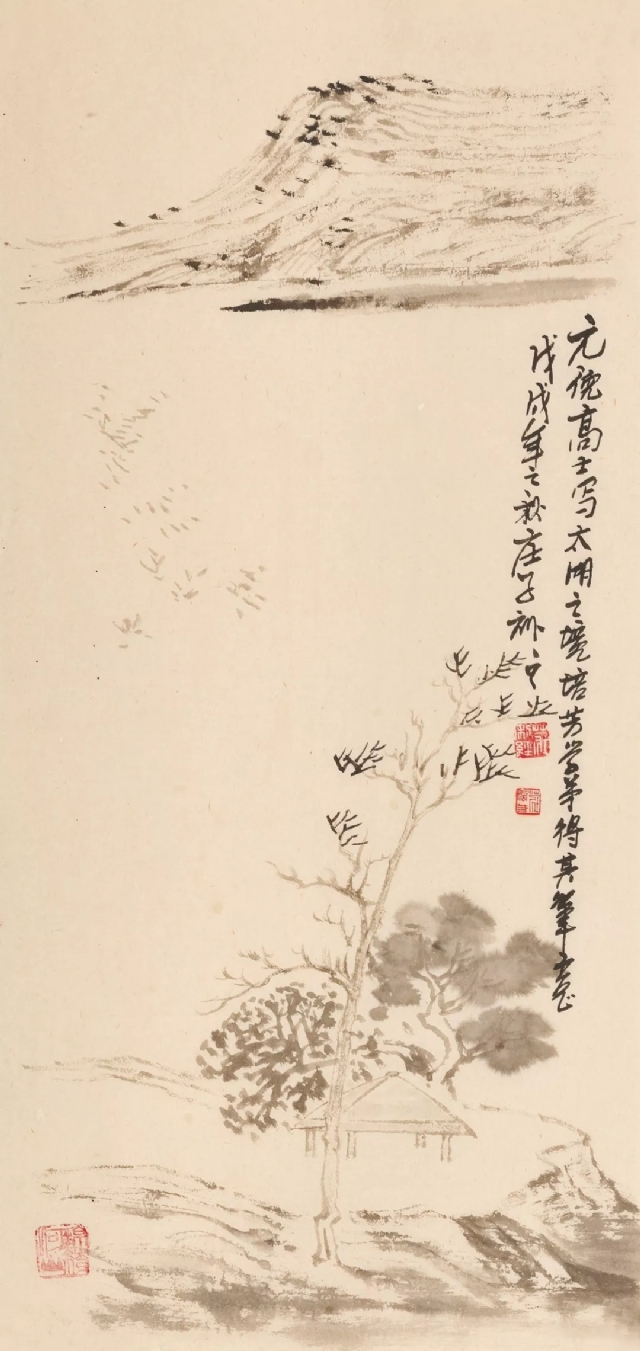 元倪高士写太湖之境培芳学弟得其笔意
戊戌年之秋庄子